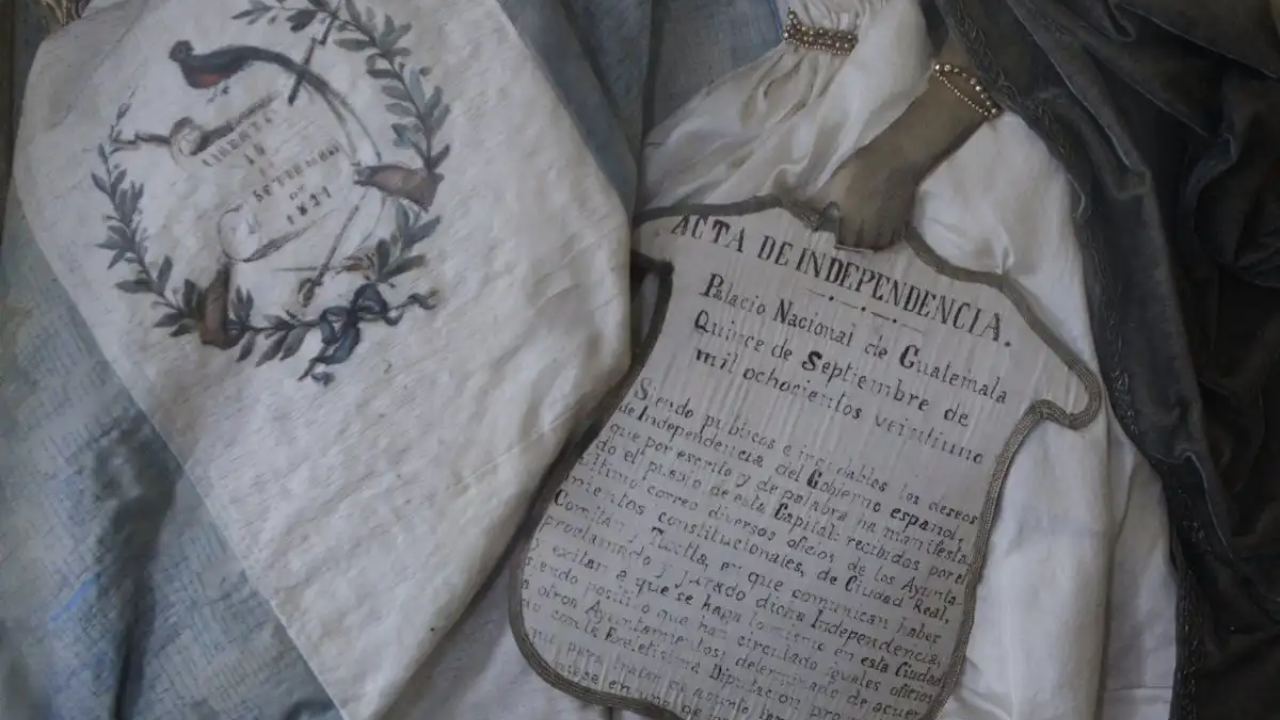 LIBERTAD
15
DE
SETIEMBRE
DE
1821
ACTA DE INDEPENDENCIA.
Palacio Nacional de Guatemala
Quince de Septiembre de
mil ochocientos veintiuno
Siendo publicos e indudables los deseos
de Independencia del Gobierno español,
que por escrito y de palabra ha manifesta
do el pueblo de esta Capital: recibidos por el
ultimo correo diversos oficios de los Ayunta-
mientos constitucionales, de Ciudad Real,
Comitán y Tuxtla, en que comunican haber
proclamado y jurado dicha Independencia,
y exitan a que se haga lo mismo en esta Ciudad
siendo positivo que han circulado iguales oficios
a otros Ayuntamientos; determinado de acuer
do con la Exceletisima Diputacion pro
que para tratar de asunto